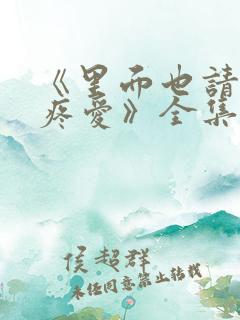 《里而也請
疼愛》全集
侯超群
未经同意禁止转载